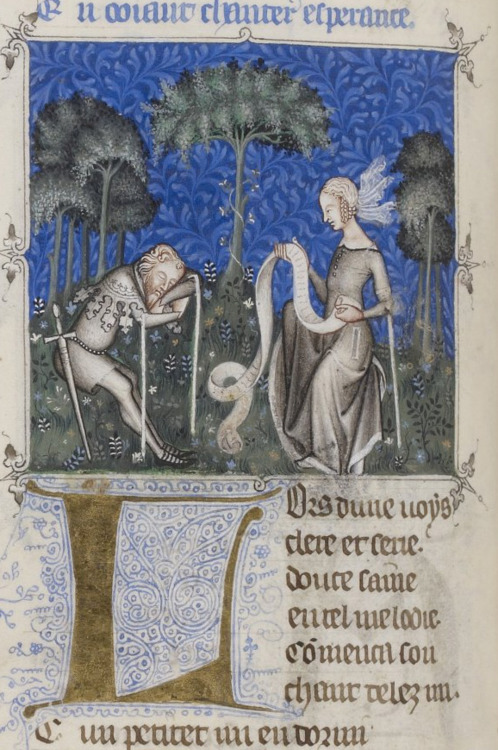 E n oiant chanter esperance.
Lors dune uoys
clere et serie.
douce saine
en tel melodie.
cōmenca son
chant delez mi.
E un petitet mi endormi